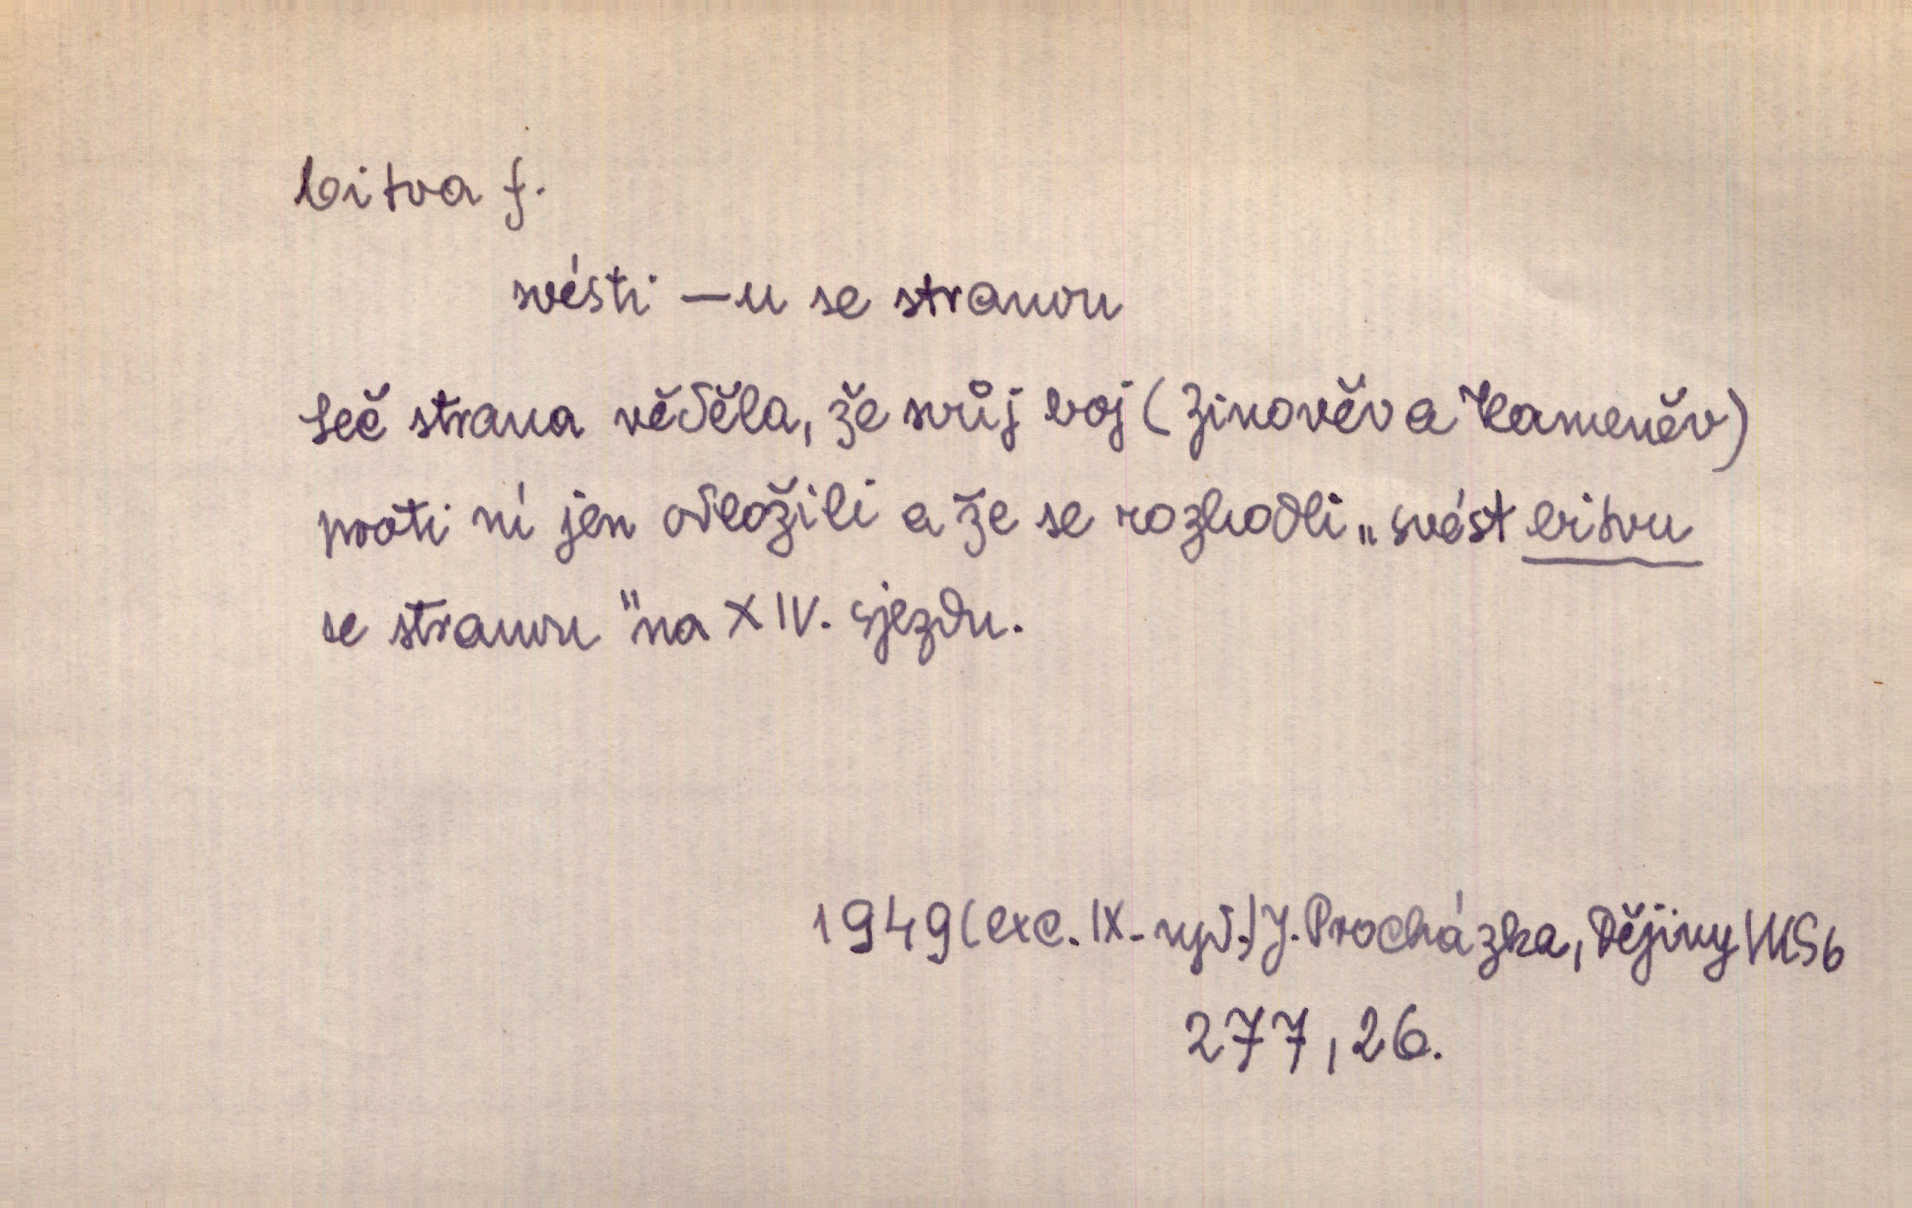 bitva f.
svésti —u se stranou
Leč strana věděla, že svůj boj (Zinověv a Kameněv)
proti ní jen odložili a že se rozhodli „svést bitvu
se stranou" na XIV. sjezdu.
1949 (exc. IX. vyd.) J. Procházka, Dějiny VKSb
277, 26.